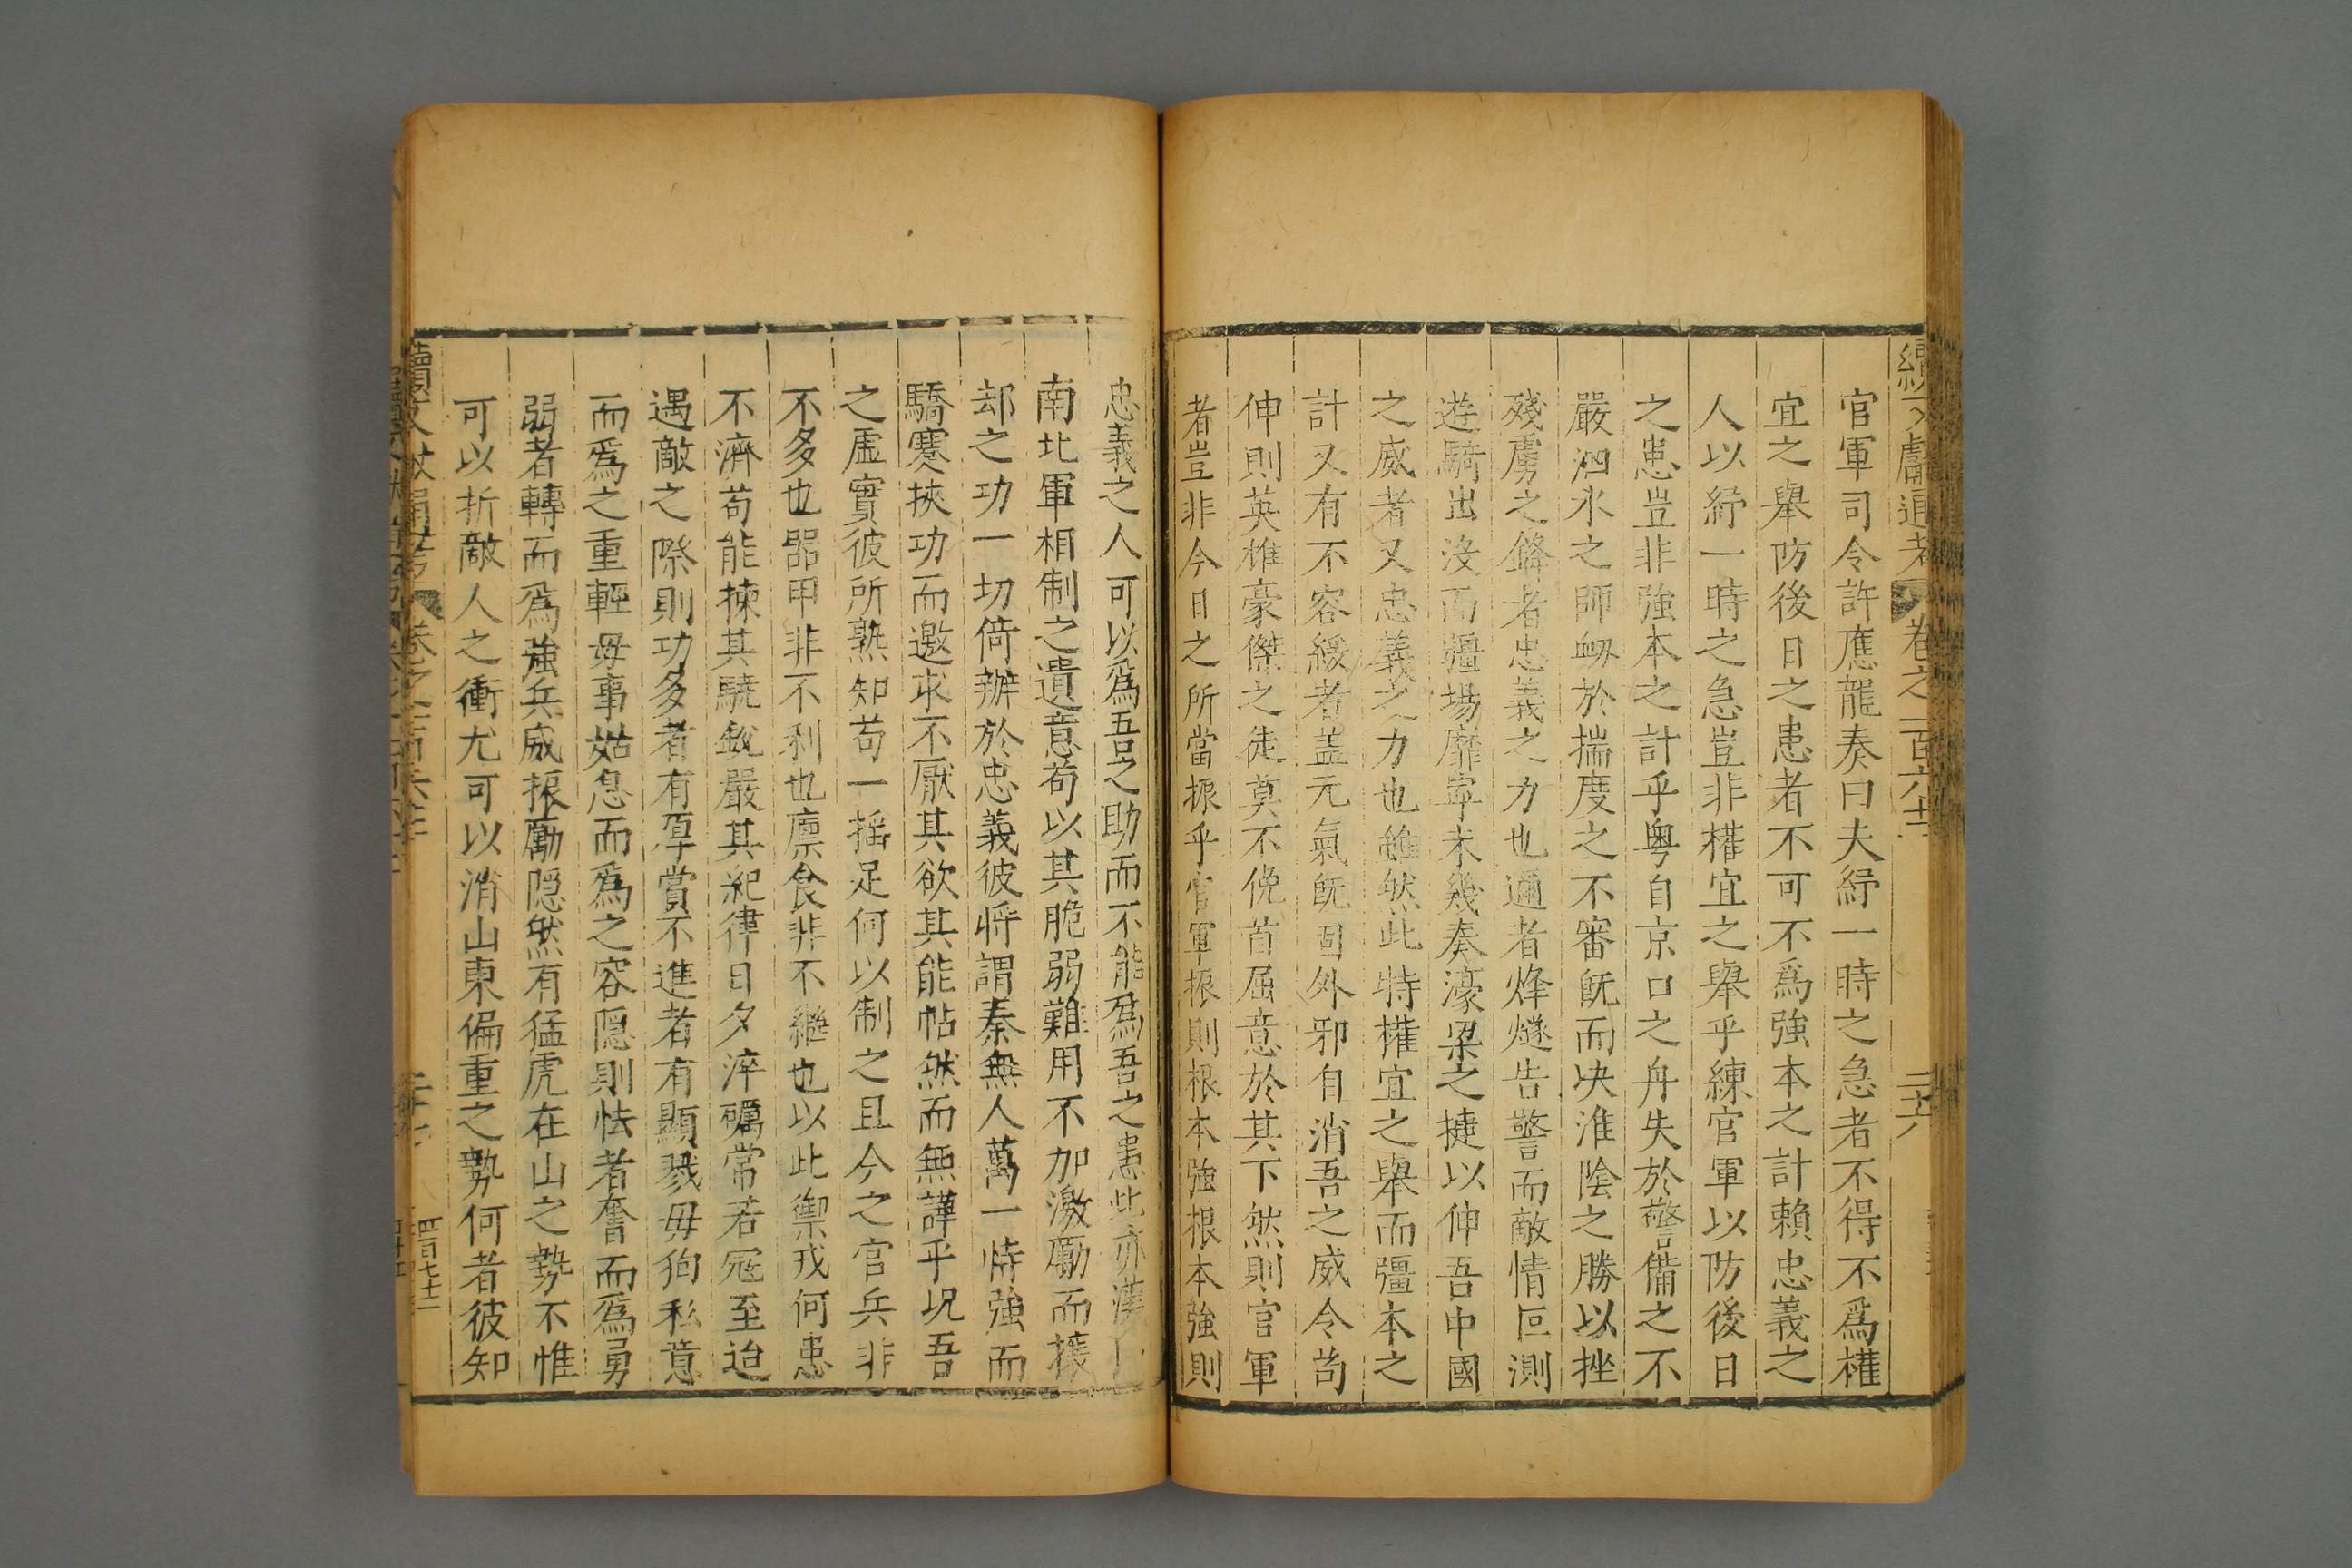 續文獻通考 卷之一百六十二 二十六
官軍司令許應龍奏曰夫紓一時之急者不得不爲權
宜之舉防後日之患者不可不爲強本之計賴忠義之
人以紓一時之急豈非權宜之舉乎練官軍以防後日
之患豈非強本之計乎粤自京口之舟失於警備之不
嚴泗水之師衂於揣度之不審旣而决淮陰之勝以挫
殘虜之鋒者忠義之力也邇者烽燧告警而敵情叵測
遊騎出沒而疆場靡寧未幾奏濠梁之捷以伸吾中國
之威者又忠義之力也雖然此特權宜之舉而彊本之
計又有不容緩者盖元氣旣固外邪自消吾之威令苟
伸則英雄豪傑之徒莫不俛首屈意於其下然則官軍
者豈非今日之所當振乎官軍振則根本強根本強則
忠義之人可以爲吾之助而不能爲吾之患此亦漢人
南北軍相制之遺意苟以其脆弱難用不加激勵而援
却之功一切倚辦於忠義彼將謂秦無人萬一恃強而
驕蹇挾功而邀求不厭其欲其能帖然而無譁乎况吾
之虛實彼所熟知苟一搖足何以制之且今之官兵非
不多也器甲非不利也廪食非不繼也以此禦戎何患
不濟苟能揀其驍銳嚴其紀律日夕淬礪常若冦至迨
遇敵之際則功多者有厚賞不進者有顯戮毋狥私意
而爲之重輕毋事姑息而爲之容隱則怯者奮而爲勇
弱者轉而爲強兵威振勵隱然有猛虎在山之勢不惟
可以折敵人之衝尤可以消山東偏重之勢何者彼知